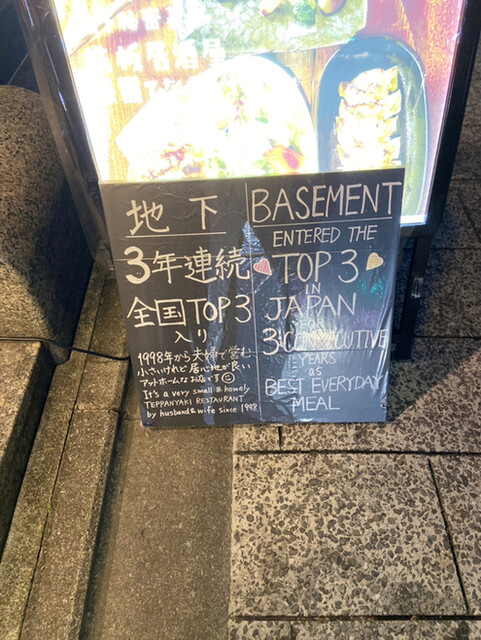 地下
3年連続
全国TOP3
入り
1998年から夫婦で営む
小さいけれど居心地が良い
アットホームなお店です
It's a very small & homely
TEPPANYAKI RESTAURANT
by husband & wife since 1998
BASEMENT
ENTERED THE
TOP 3
IN
JAPAN
FOR
3 CONSECUTIVE
YEARS
as
BEST EVERYDAY
MEAL